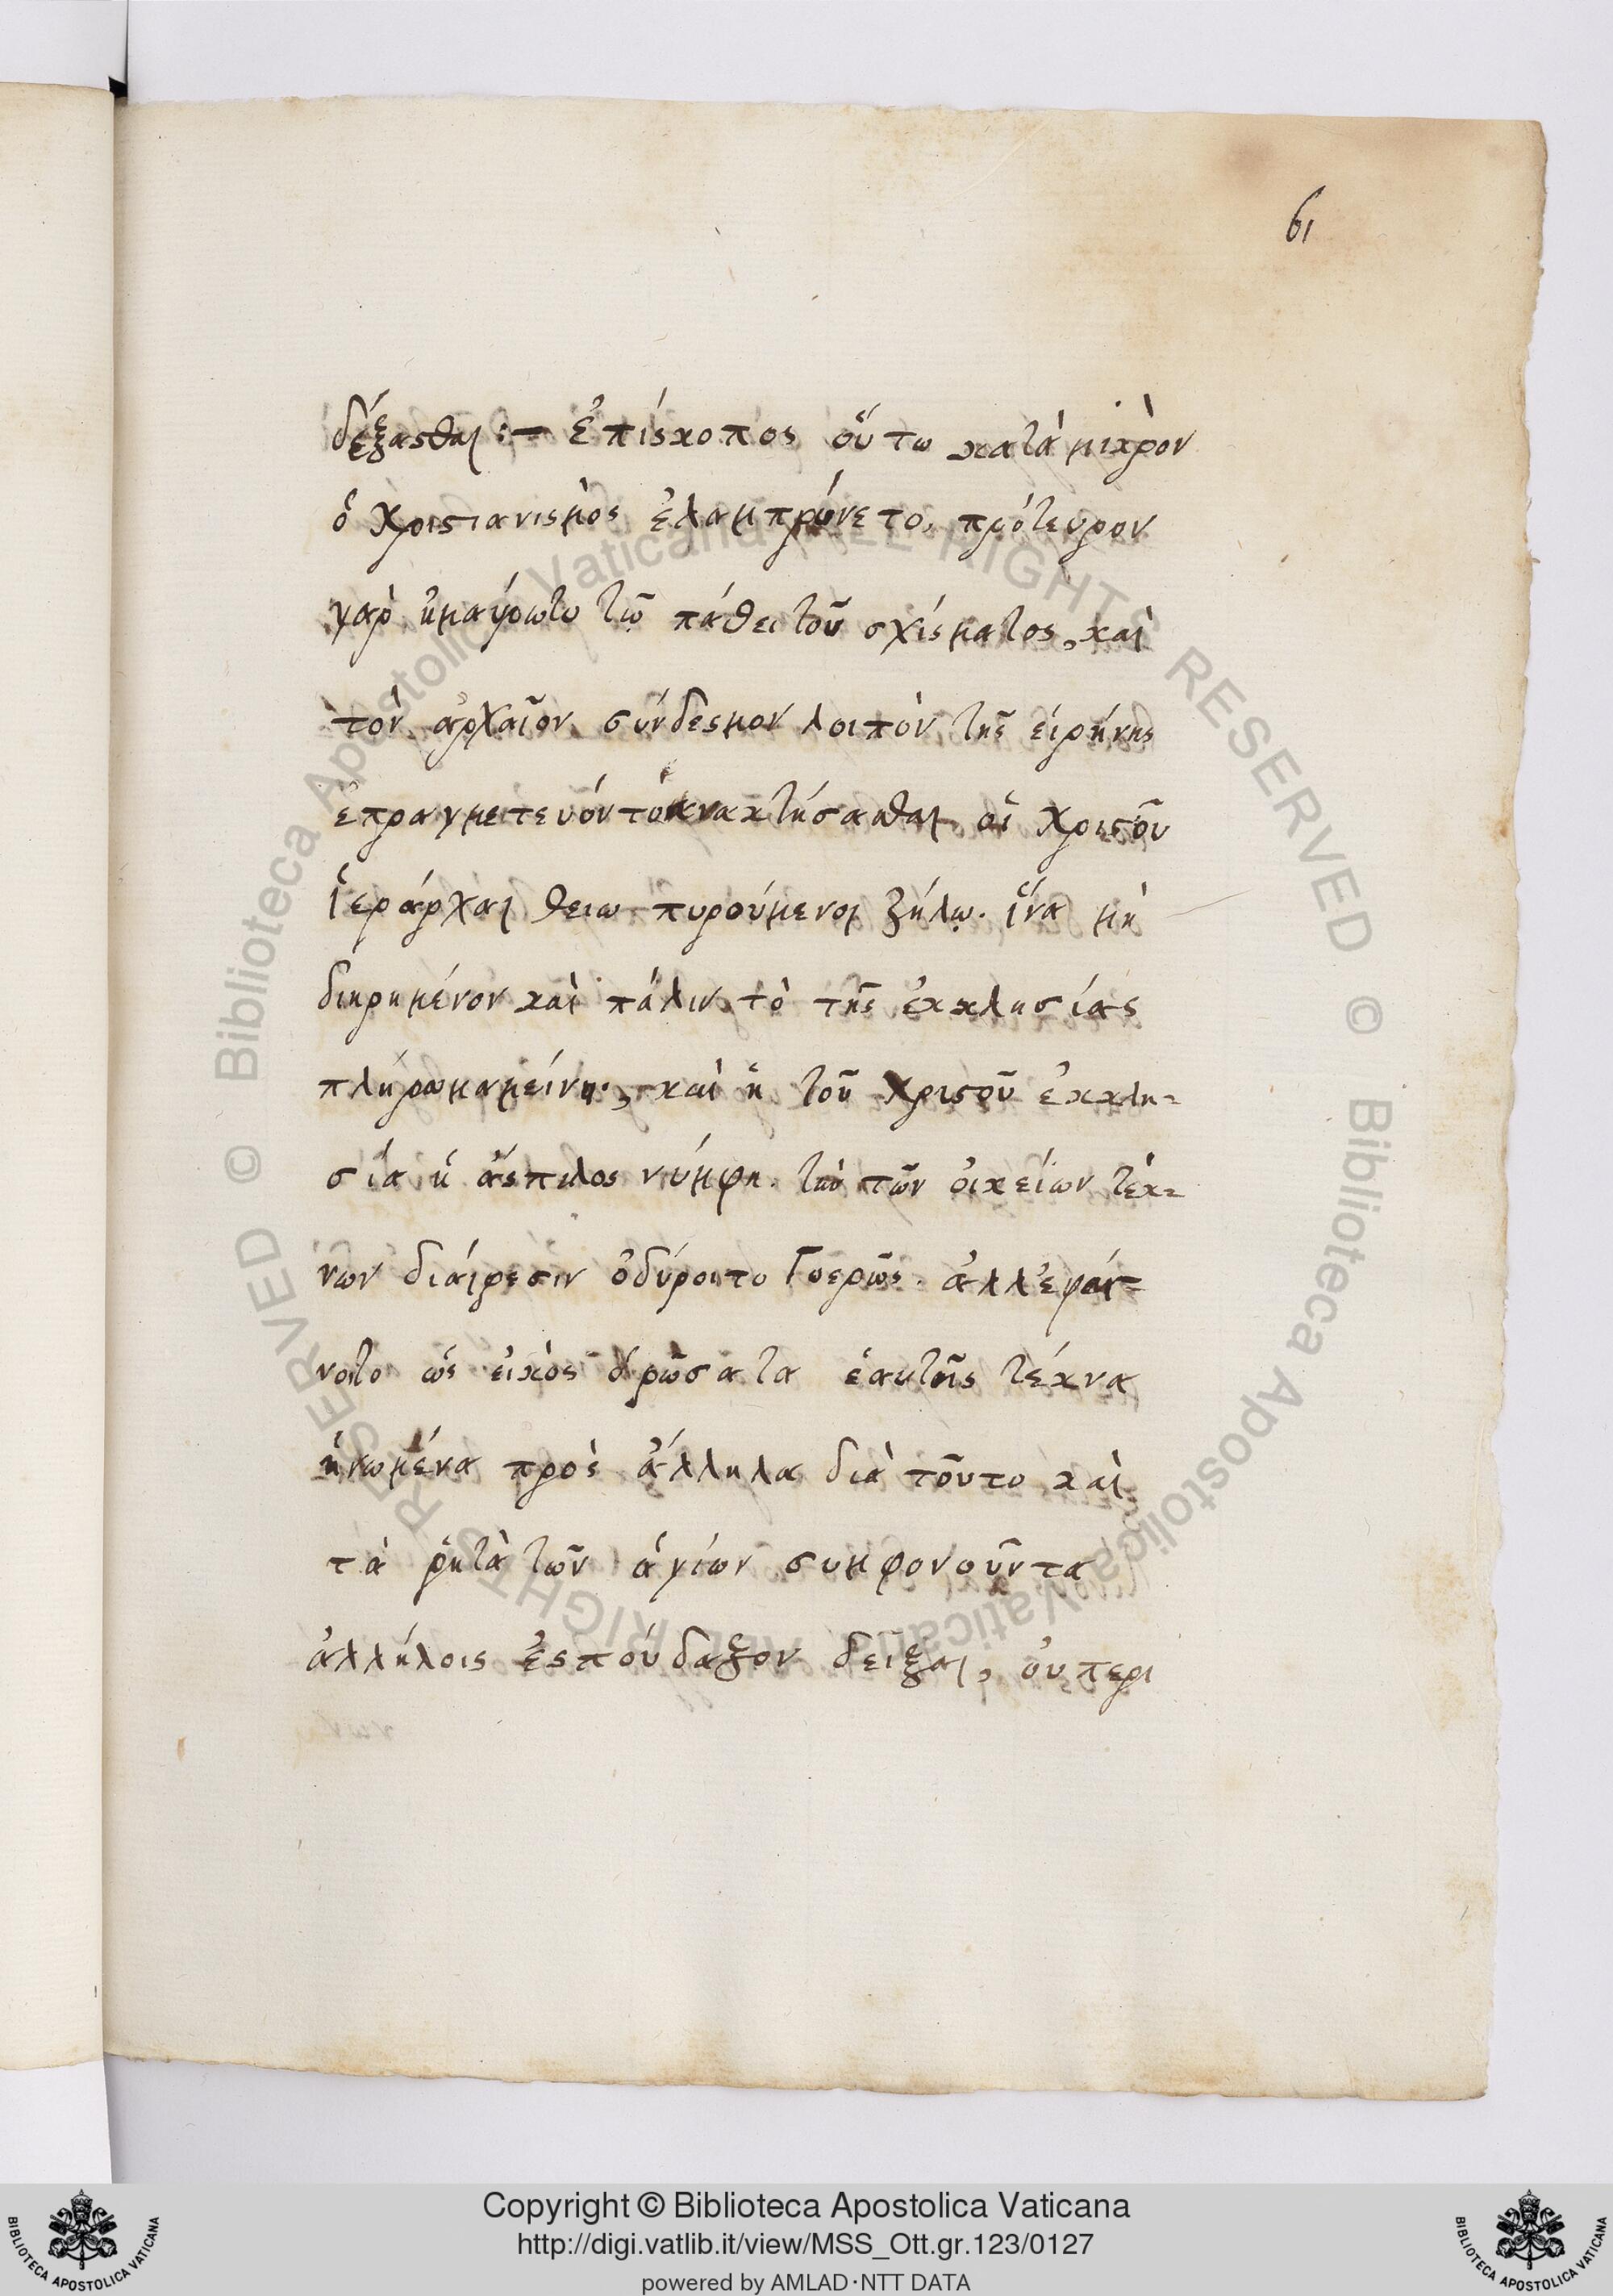 61
δέξασθαι :— ἐπίσκοπος οὕτω κατὰ μικρὸν
ὁ χριστιανισμὸς ἐλαμπρύνετο, πρότευρον
γαρ ἠμαύρωτο τῷ πάθει τοῦ σχίσματος, καὶ
τὸν ἀρχαῖον σύνδεσμον λοιπὸν τῆς εἰρήνης
ἐπραγμετευόντο ἀνακτήσασθαι οἱ χριστοῦ
ἱεράρχαι θειω πυρούμενοι ζήλῳ. ἵνα μὴ
διῃρημένον καὶ πάλιν τὸ τῆς ἐκκλησίας
πλήρωμα μείνῃ, καὶ ἡ τοῦ χριστοῦ ἐκκλη=
σία ἡ ἄσπιλος νύμφη. τὴν τῶν οἰκείων τέκ=
νων διαίρεσιν ὀδύροιτο γοερῶς. ἀλλ' εφαί=
νοιτο ὡς εἰκὸς ὁρῶσα τα ἑαυτῆς τέκνα
ἡνωμένα πρὸς ἄλληλα διὰ τοῦτο καὶ
τὰ ῥητὰ τῶν ἁγίων συμφονοῦντα
ἀλλήλοις ἐσπούδαξον δεῖξαι, ὀυ περι
Copyright © Biblioteca Apostolica Vaticana
http://digi.vatlib.it/view/MSS_Ott.gr.123/0127
powered by AMLAD·NTT DATA
BIBLIOTECA APOSTOLICA VATICANA
BIBLIOTECA APOSTOLICA VATICANA
© Biblioteca Apostolica Vaticana ALL RIGHTS RESERVED © Biblioteca Apostolica Vaticana ALL RIGHTS RESERVED